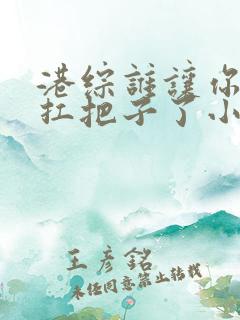 港综谁让你
扛把子了小
王彦銘
未经同意禁止转载